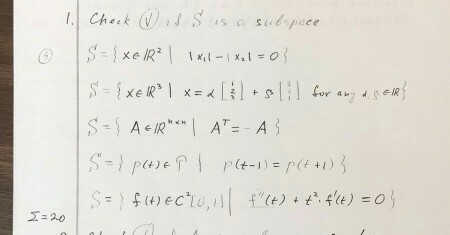 1. Check (√) if S is a subspace
S = { x ∈ ℝ² | |x₁| - |x₂| = 0 }
S = { x ∈ ℝ³ | x = α [1 2 3] + β for any α, β ∈ ℝ }
S = { A ∈ ℝⁿˣⁿ | Aᵀ = - A }
S = { p(t) ∈ P | p(t-1) = p(t+1) }
S = { f(t) ∈ C²[0,1] | f''(t) + t² · f'(t) = 0 }
Σ = 20